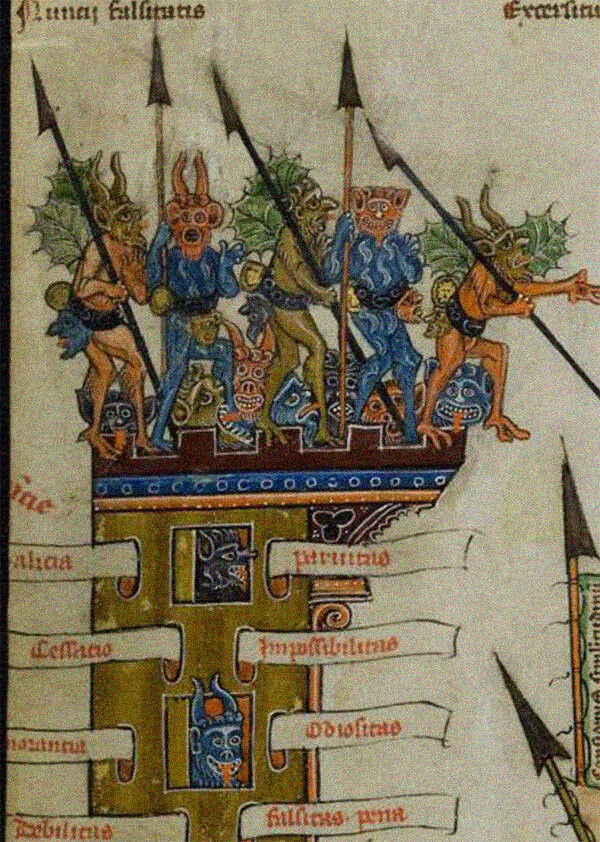 Nuncij falsitatis
Exercitu
alicia
paruitas
Cessacio
Impossibilitas
norantia
Odiositas
Debilitas
falsitas pena